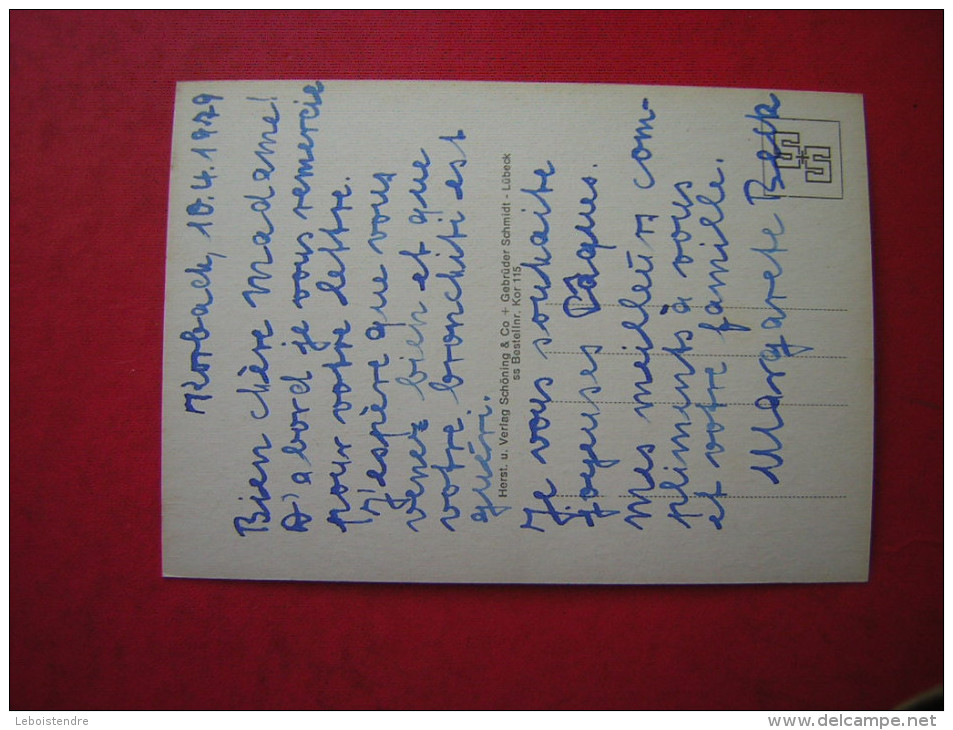 Korbach, 10.4.1979
Bien chère Madame!
D'abord je vous remercie
pour votre lettre.
J'espère que vous
venez bien et que
votre bronchiti est
guéri.
Herst. u. Verlag Schöning & Co + Gebrüder Schmidt - Lübeck
ss Bestellnr. Kor 115
Je vous souhaite
joyeuses Pâques.
Mes meilleurs com-
pliments à vous
et votre famille.
Margarete Beck
Leboistendre
www.delcampe.net